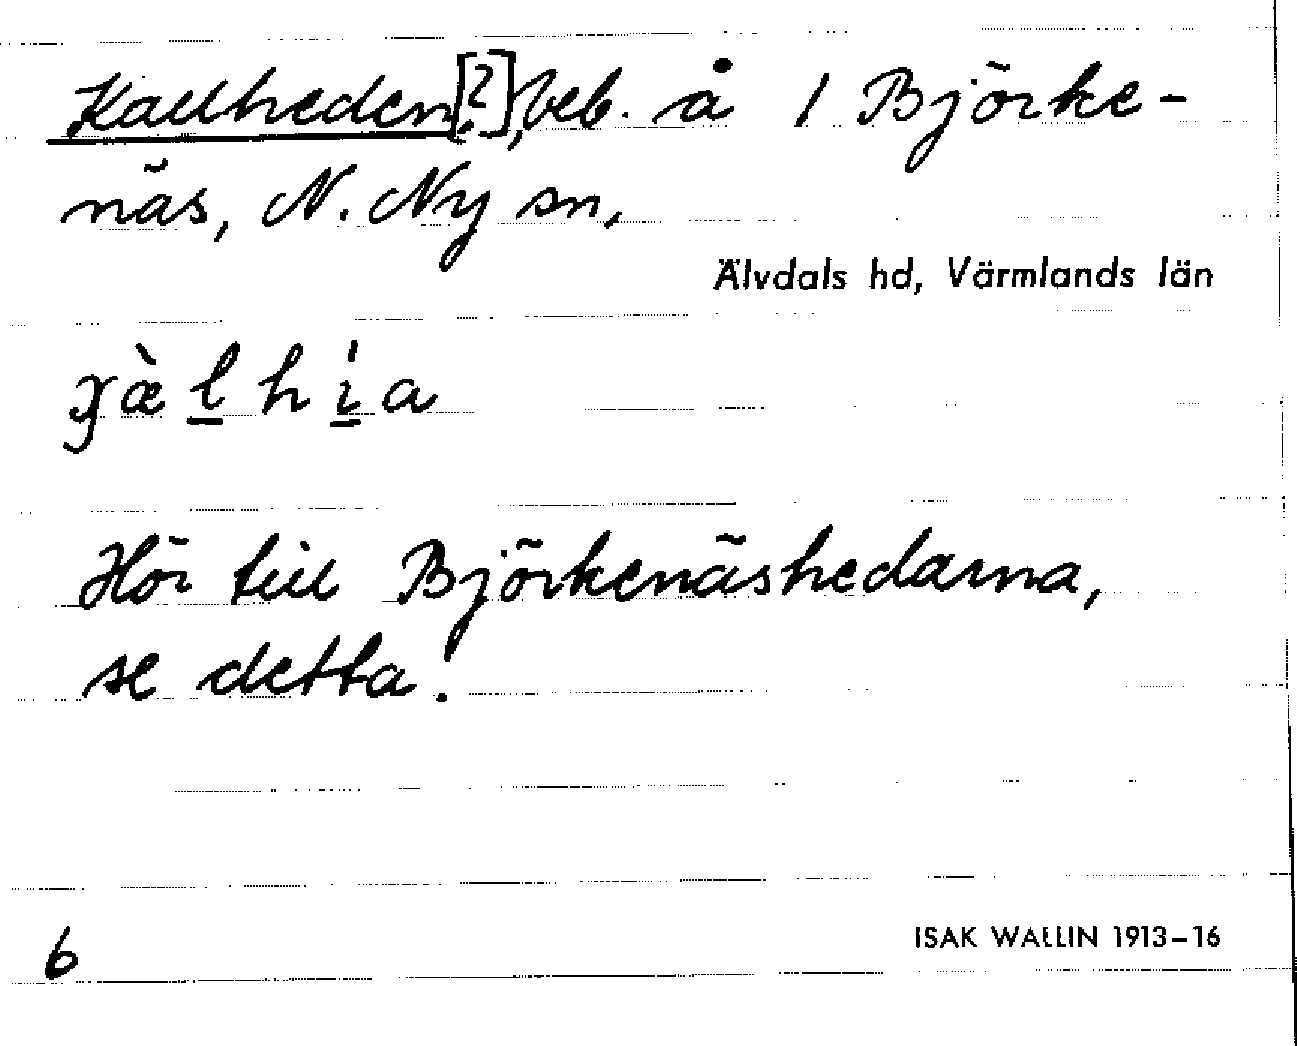 Kallheden[?], beb. å 1 Björke-
näs, N. Ny sn,
Älvdals hd, Värmlands län
Hör till Björkenäshedarna,
se detta!
6
ISAK WALLIN 1913–16